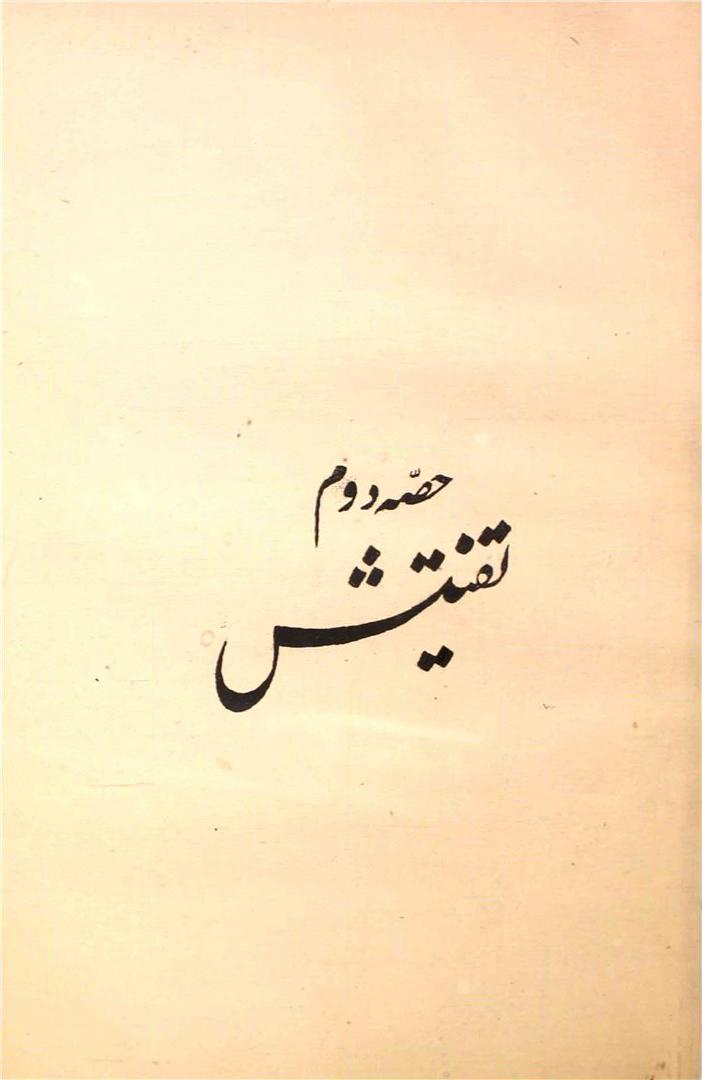 حصّہ دوم
تفتیش